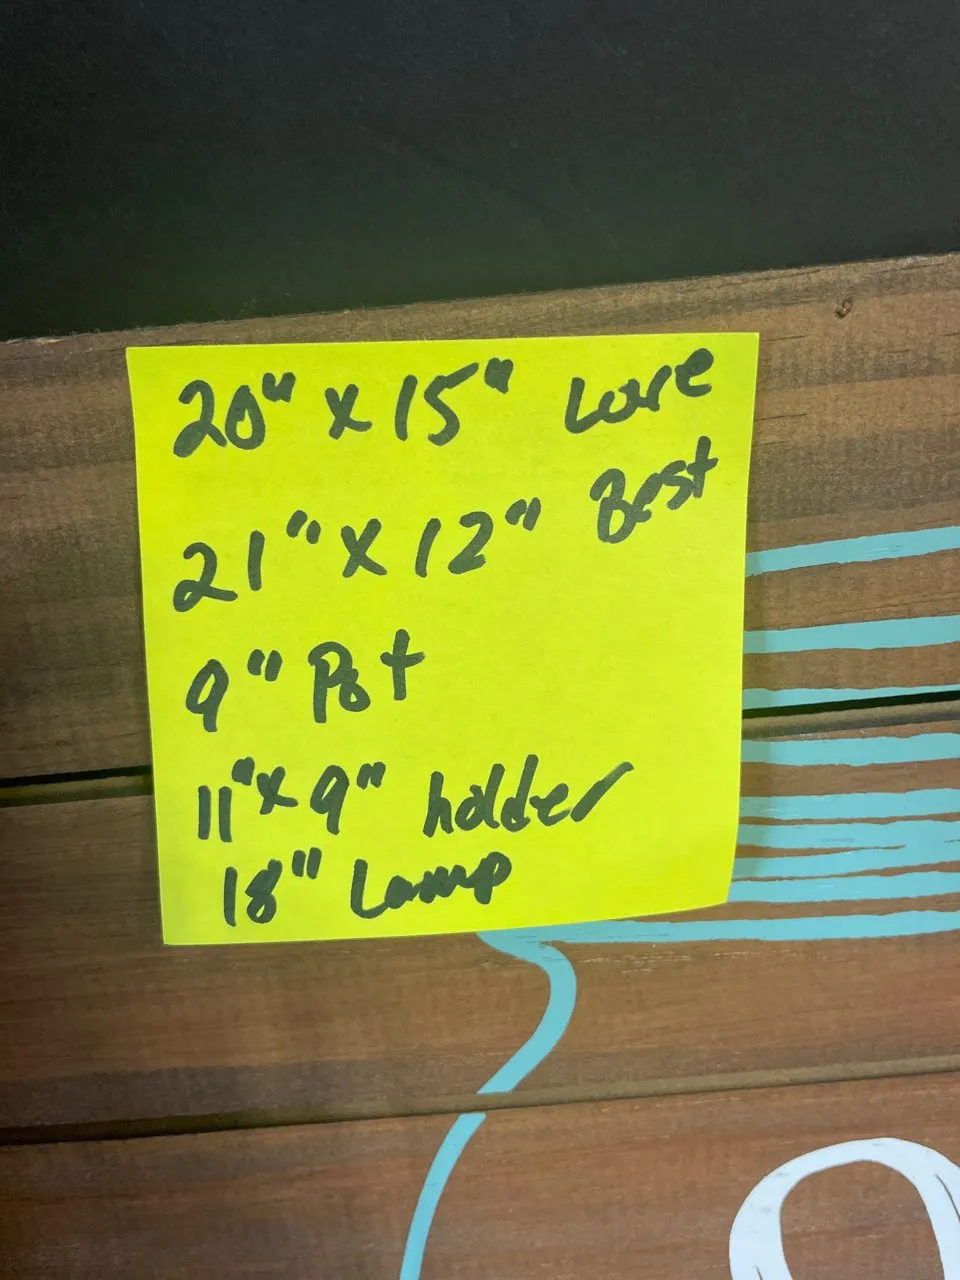 20" x 15" Love
21" x 12" Best
9" Pot
11" x 9" holder
18" Lamp